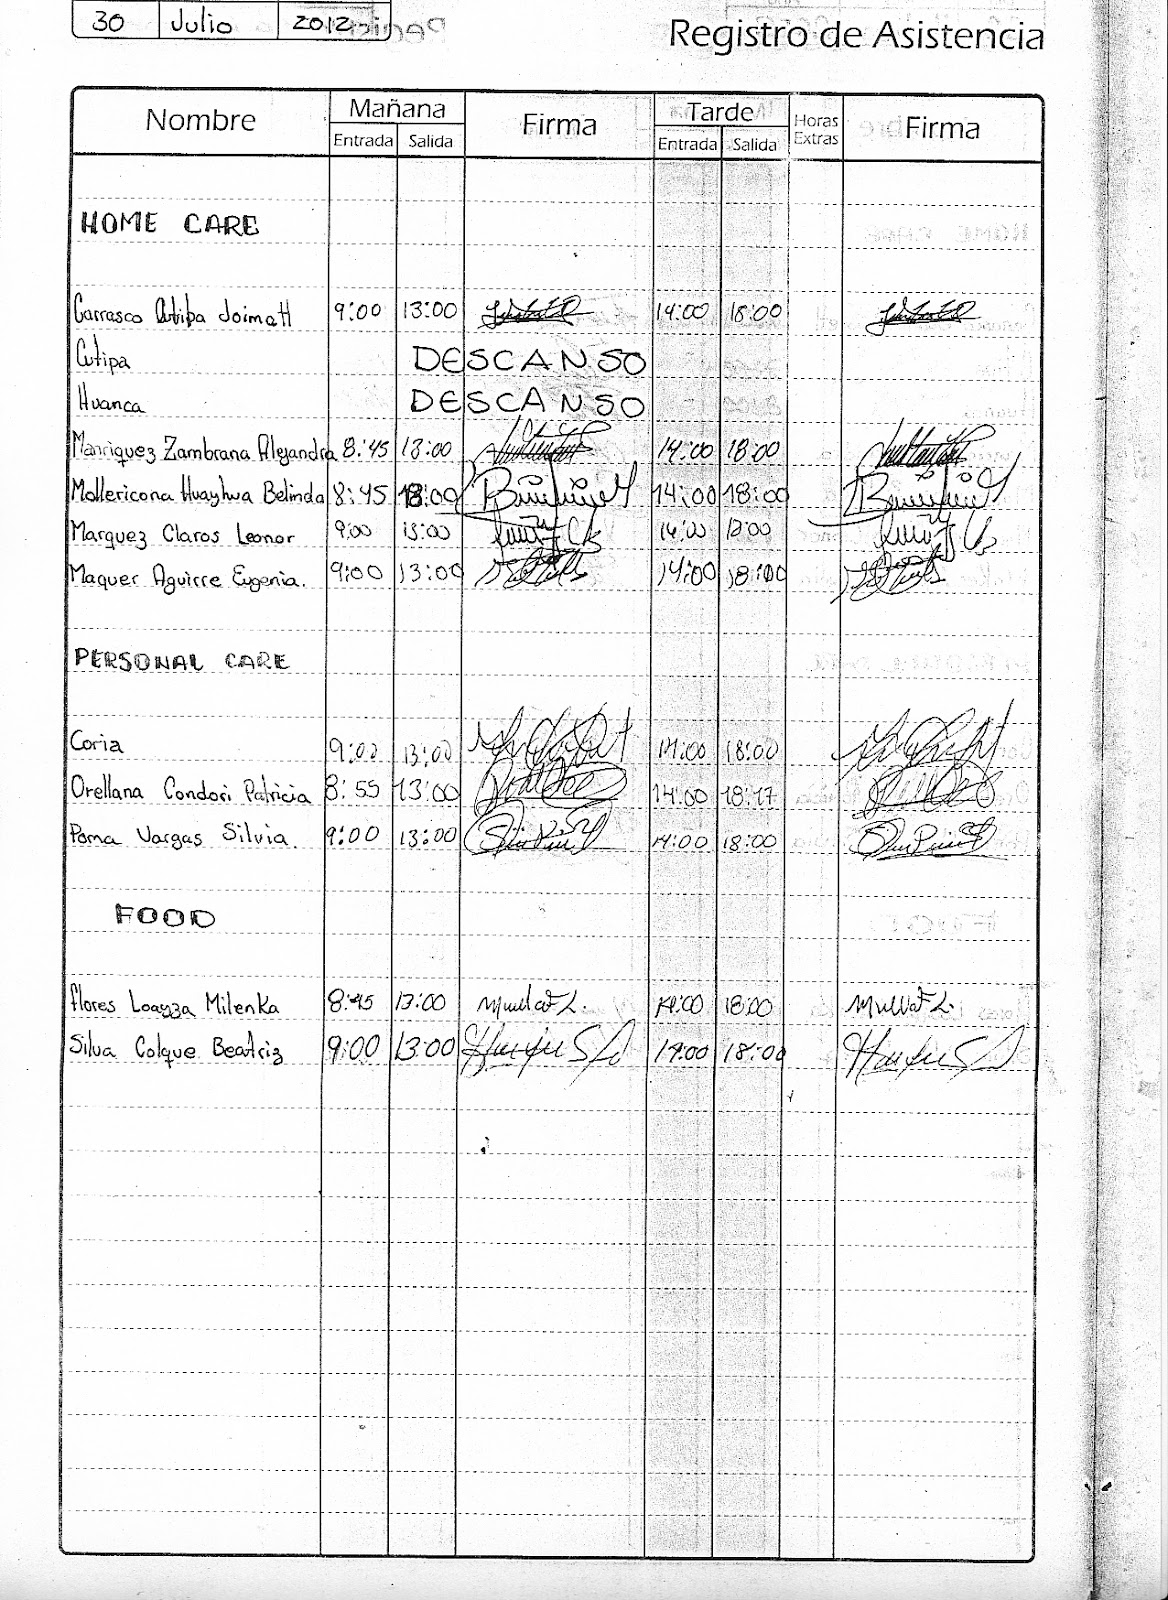 30 Julio 2012
Registro de Asistencia
Nombre Mañana Firma Tarde Horas Extras Firma
Entrada Salida Entrada Salida
HOME CARE
Carrasco Cutipa Joimatt 9:00 13:00 14:00 18:00
Cutipa DESCANSO
Huanca DESCANSO
Manriquez Zambrana Alejandra 8:45 13:00 14:00 18:00
Mollericona Huayhua Belinda 8:45 13:00 14:00 18:00
Marquez Claros Leonor 9:00 13:00 14:00 18:00
Maquer Aguirre Eugenia. 9:00 13:00 14:00 18:00
PERSONAL CARE
Coria 9:00 13:00 14:00 18:00
Orellana Condori Patricia 8:55 13:00 14:00 18:17
Poma Vargas Silvia. 9:00 13:00 14:00 18:00
FOOD
Flores Loayza Milenka 8:45 13:00 14:00 18:00
Silva Colque Beatriz 9:00 13:00 14:00 18:00